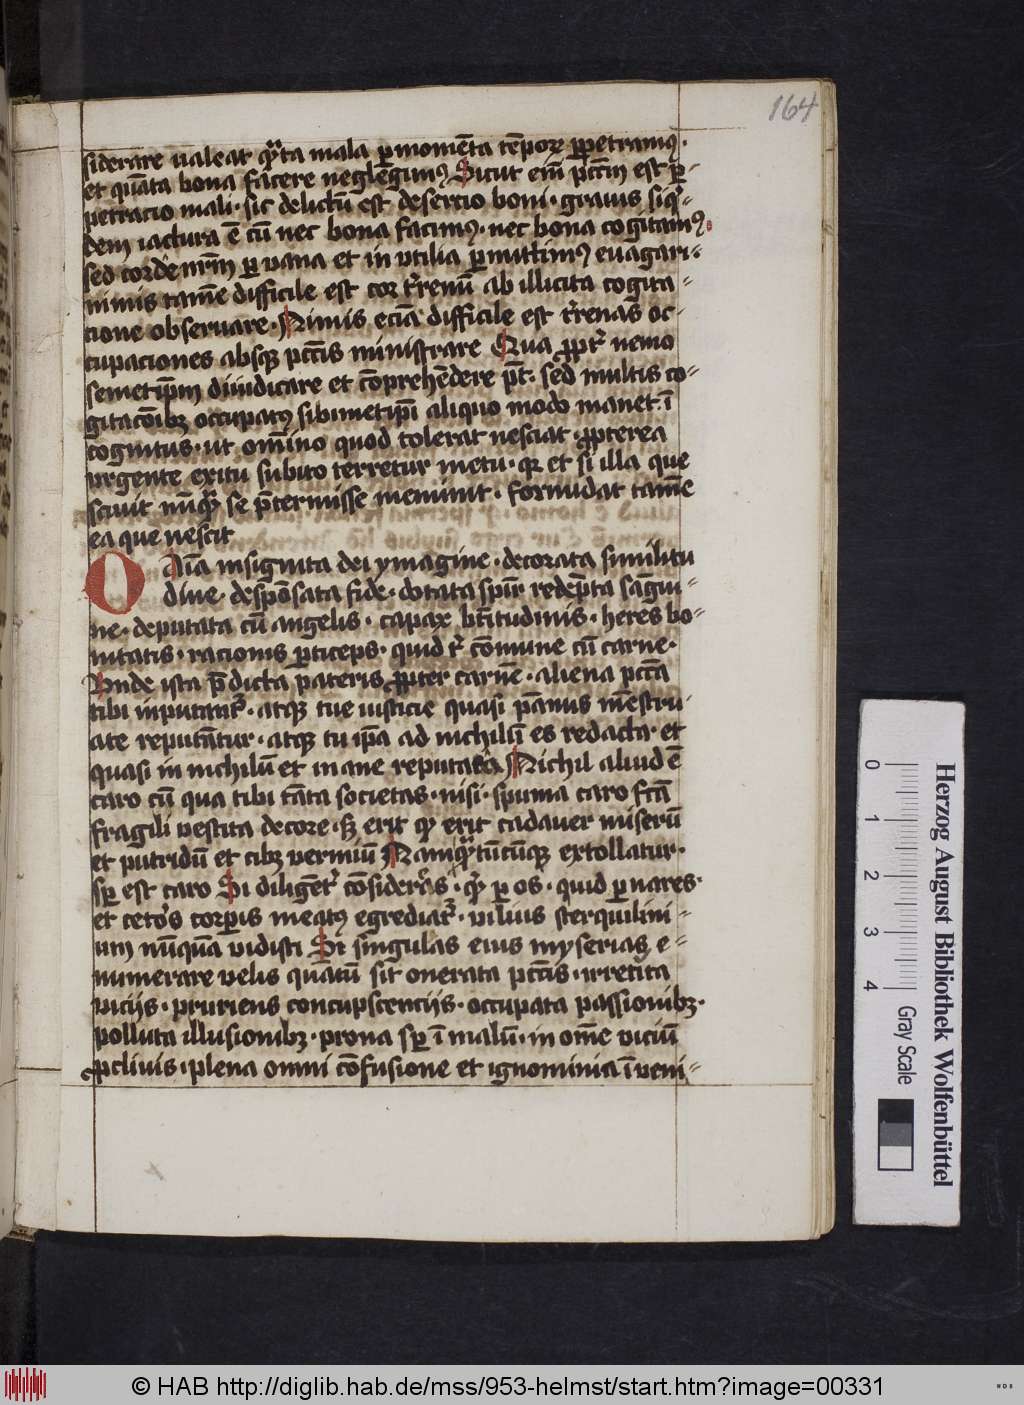 164
siderare ualeat qͣnta mala ꝑ momēta tēpoꝝ ꝑpetramꝰ·
et quāta bona facere neglegimꝰ Sicut eī pctm̄ est ꝑ-
petracio mali· sic delictū est desercio boni· grauis siqͥ-
dem iactura ē cū nec bona facimꝰ· nec bona cogitamꝰ
sed cor de nr̄m ꝑ vana et in vtilia ꝑmittimꝰ euagari·
nimis tamē difficile est cor tr̄renū ab illicita cogita-
cione obseruare· Nimis eciā difficile est tr̄renas oc-
cupaciones absqꝫ pctīs ministrare Qua ꝓptͬ nemo
semetip̄m diiudicare et cōprehēdere pt̄· sed multis co-
gitacōibꝫ occupatꝰ sibimetip̄i aliquo modo manet· ī
cognitus· ut om̄ino quod tolerat nesciat· ꝓpterea
vrgente exitu subito terretur metu· qꝛ et si illa que
sciuit nūqͣ se p̄termisse meminit· formidat tamē
ea que nescit
O Aīa insignita dei ymagine· decorata similitu
dine· despōsata fide· dotata spū· redēpta sāgui-
ne· deputata cū angelis· capax bt̄itudinis· heres bo-
nitatis· racionis ꝑticeps· quid tͥ cōmune cū carne·
Vnde ista p̄dicta pateris ꝓpter carnē· aliena pctā
tibi inputantͬ· atqꝫ tue iusticie quasi pānus mēstru-
ate reputātur· atqꝫ tu ip̄a ad nichilū es redacta· et
quasi in nichilū et inane reputata Nichil aliud ē
caro cū qua tibi tāta societas· nisi· spuma caro fctā
fragili vestita decore· sꝫ erit qn̄ erit cadauer miserū
et putridū et cibꝫ vermiū Nam qͣtūcūqꝫ extollatur·
sꝑ est caro Si diligēt͛ cōsideras· qͥd ꝑ os· quid ꝑ nares·
et cet͛os corꝑis meatꝰ egrediatͬ· vilius sterquilini-
um nūquā vidisti Si singulas eius myserias e-
numerare velis quātū sit onerata pctīs· irretita
viciis· pruriens concupscenciis· occupata passionibꝫ·
polluta illusionibꝫ· prona sꝑ ī malū· in om̄e viciū
ꝓcliuis· plena omni cōfusione et ignominia ī veni-
Herzog August Bibliothek Wolfenbüttel
0 1 2 3 4
Gray Scale
© HAB http://diglib.hab.de/mss/953-helmst/start.htm?image=00331